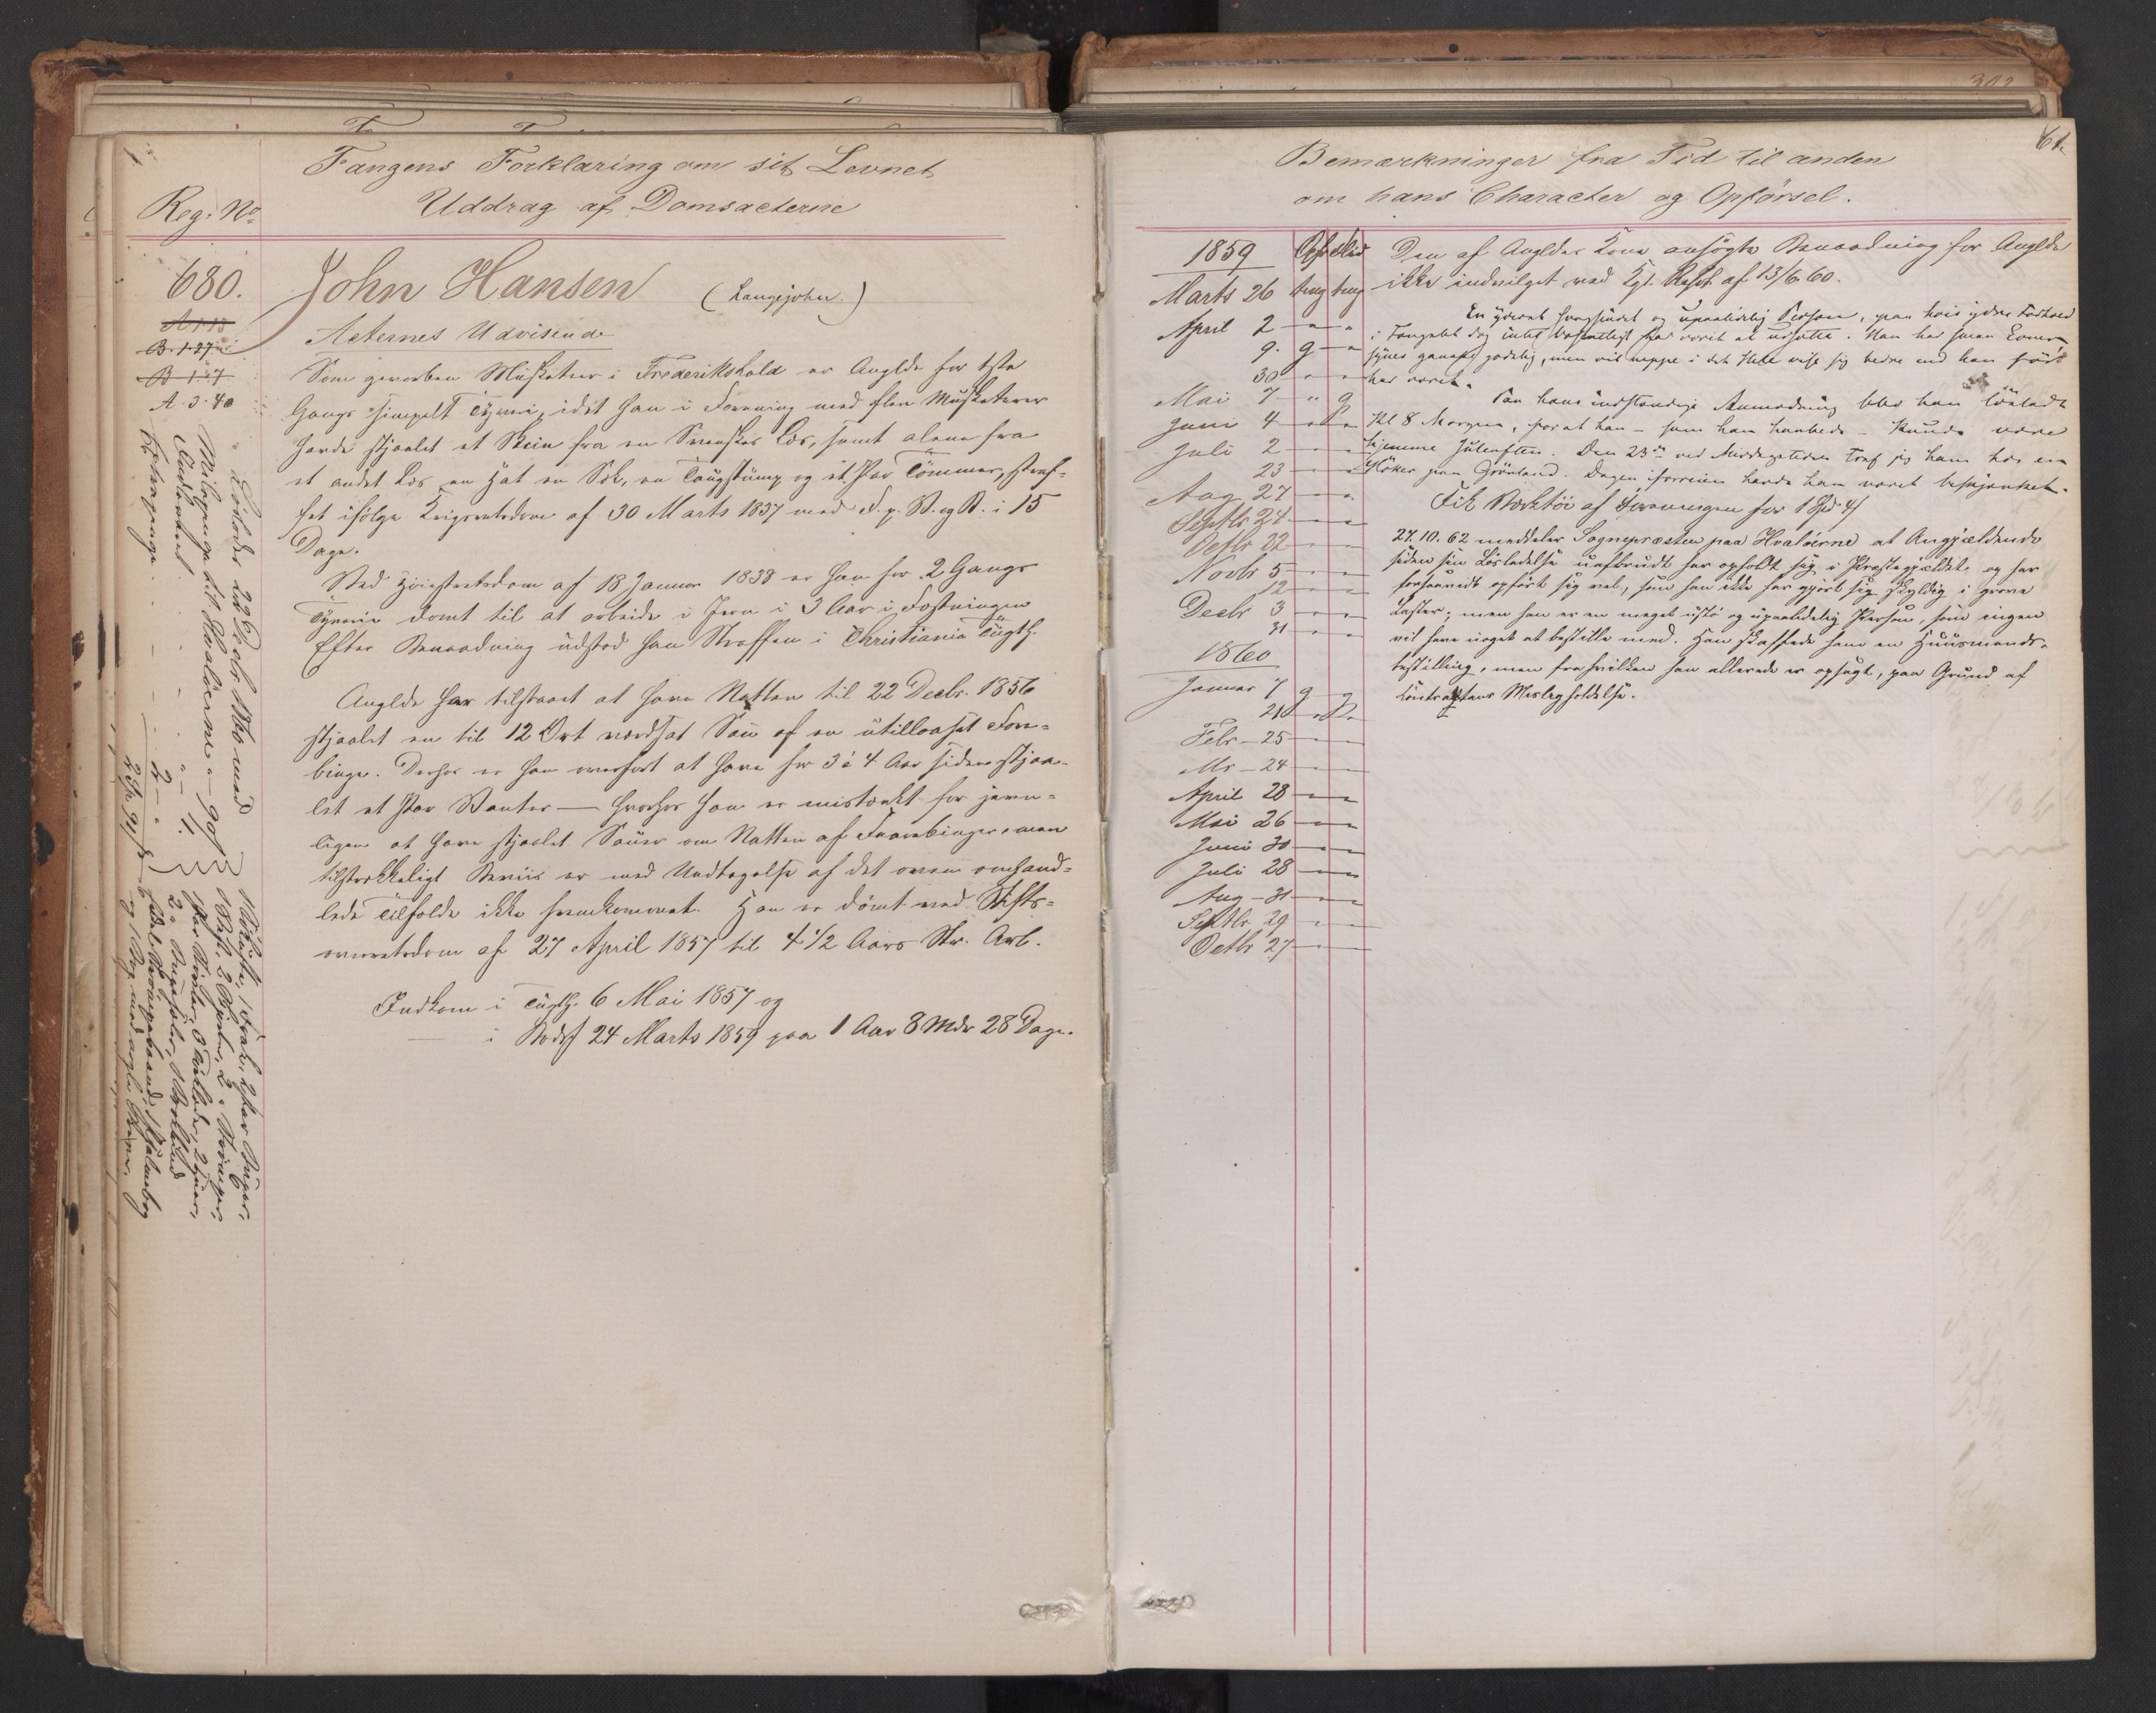 Fangens Forklaring om sit Levnet
Uddrag af Domsacterne
Reg: No
680.
A 1.13
B. 1.27
B 1.7
A. 3. 40
John Hansen (Langejohn.)
Acternes Udvisende
Som geworben Musketeer i Frederikshald er Anglde for 1ste
Gangs simpelt Tyveri, idet han i Forening med flere Musketerer
havde stjaalet et Skin fra en Svenskes Læs, samt alene fra
et andet Læs en Hat en Sæk, en Taugstump og et Par Tømmer, straf-
fet ifølge Krigsretsdom af 30 Marts 1837 med F. p. V. og B. i 15
Dage.
Ved Høiesteretsdom af 18 Januar 1838 er han for 2 Gangs
Tyverie dømt til at arbeide i Jern i 3 Aar i Fæstningen
Efter Benaadning udstod han Straffen i Christiania Tugth.
Anglde har tilstaaet at have Natten til 22 Decbr. 1856
stjaalet en til 12 Ort værdsat Sau af en utillaaset Faare-
binge. Derhos er han overført at have for 3 à 4 Aar siden stjaa-
let et Par Vanter — hvorhos han er mistænkt for jevn-
ligen at have stjaalet Sauer om Natten af Faarebinger, men
tilstrækkeligt Beviis er med Undtagelse af det oven omhand-
lede Tilfælde ikke fremkommet. Han er dømt ved Stifts-
overretsdom af 27 April 1857 til 4 1/2 Aars Str. Arb.
Indkom i Tugth. 6 Mai 1857 og
— i Bodsf 24 Marts 1859 paa 1 Aar 8 Mdr 28 Dage.
Løslades 22 Decbr 1860 med
Milepenge til Hvaløerne - 90
61.
Bemærkninger fra Tid til anden
om hans Character og Opførsel.
1859 Opf Flid
Marts 26 tmg tmg
April 2 " "
9. g "
30 " "
Mai 7 " g
Juni 4
Juli 2 " "
23 " "
Aug 27 " "
Septbr 24 " "
Octbr 22 " "
Novbr 5 " "
12 " "
Decbr 3 " "
31 " "
1860
Januar 7 g g
21
Febr - 25 " "
Mr - 24 " "
April 28 " "
Mai 26 " "
Juni 30 " "
Juli 28 " "
Aug - 31 " "
Septbr 29 " "
Octbr 27 " "
Den af Angldes Kone ansøgte Benaadning for Anglde
ikke indvilget ved Kgl. Resol. af 13/6. 60.
En yderst svagsindet og upaalidelig Person, paa hvis ydre Forhold
i Fængslet dog intet væsentligt har været at udsætte. Han har
synes ganske godslig, men vil neppe i det Hele vise sig bedre end han før
har været.
Paa hans indstændige Anmodning blev han løsladt
Kl 8 Morgen, for at han - som han haabede - kunde være
hjemme Juleaften. Den 23de ved Middagstiden traf jeg ham hos en
Høker paa Grønland. Dagen forreien havde han været beskjænket.
Fik Værktøi af Foreningen for 1 Spd
27. 10. 62 meddeler Sognepræsten paa Hvaløerne at Angjældende
siden sin Løsladelse uafbrudt har opholdt sig i Præstegjældet, og har
forsaavidt opført sig vel, som han ikke har gjort sig skyldig i grove
Laster; men han er en meget ustø og upaalidelig Person, som ingen
vil have noget at bestille med. Han skaffede ham en Huusmands-
bestilling, men fra hvilken han allerede er opsagt, paa Grund af
Kontraktens Misligholdelse.